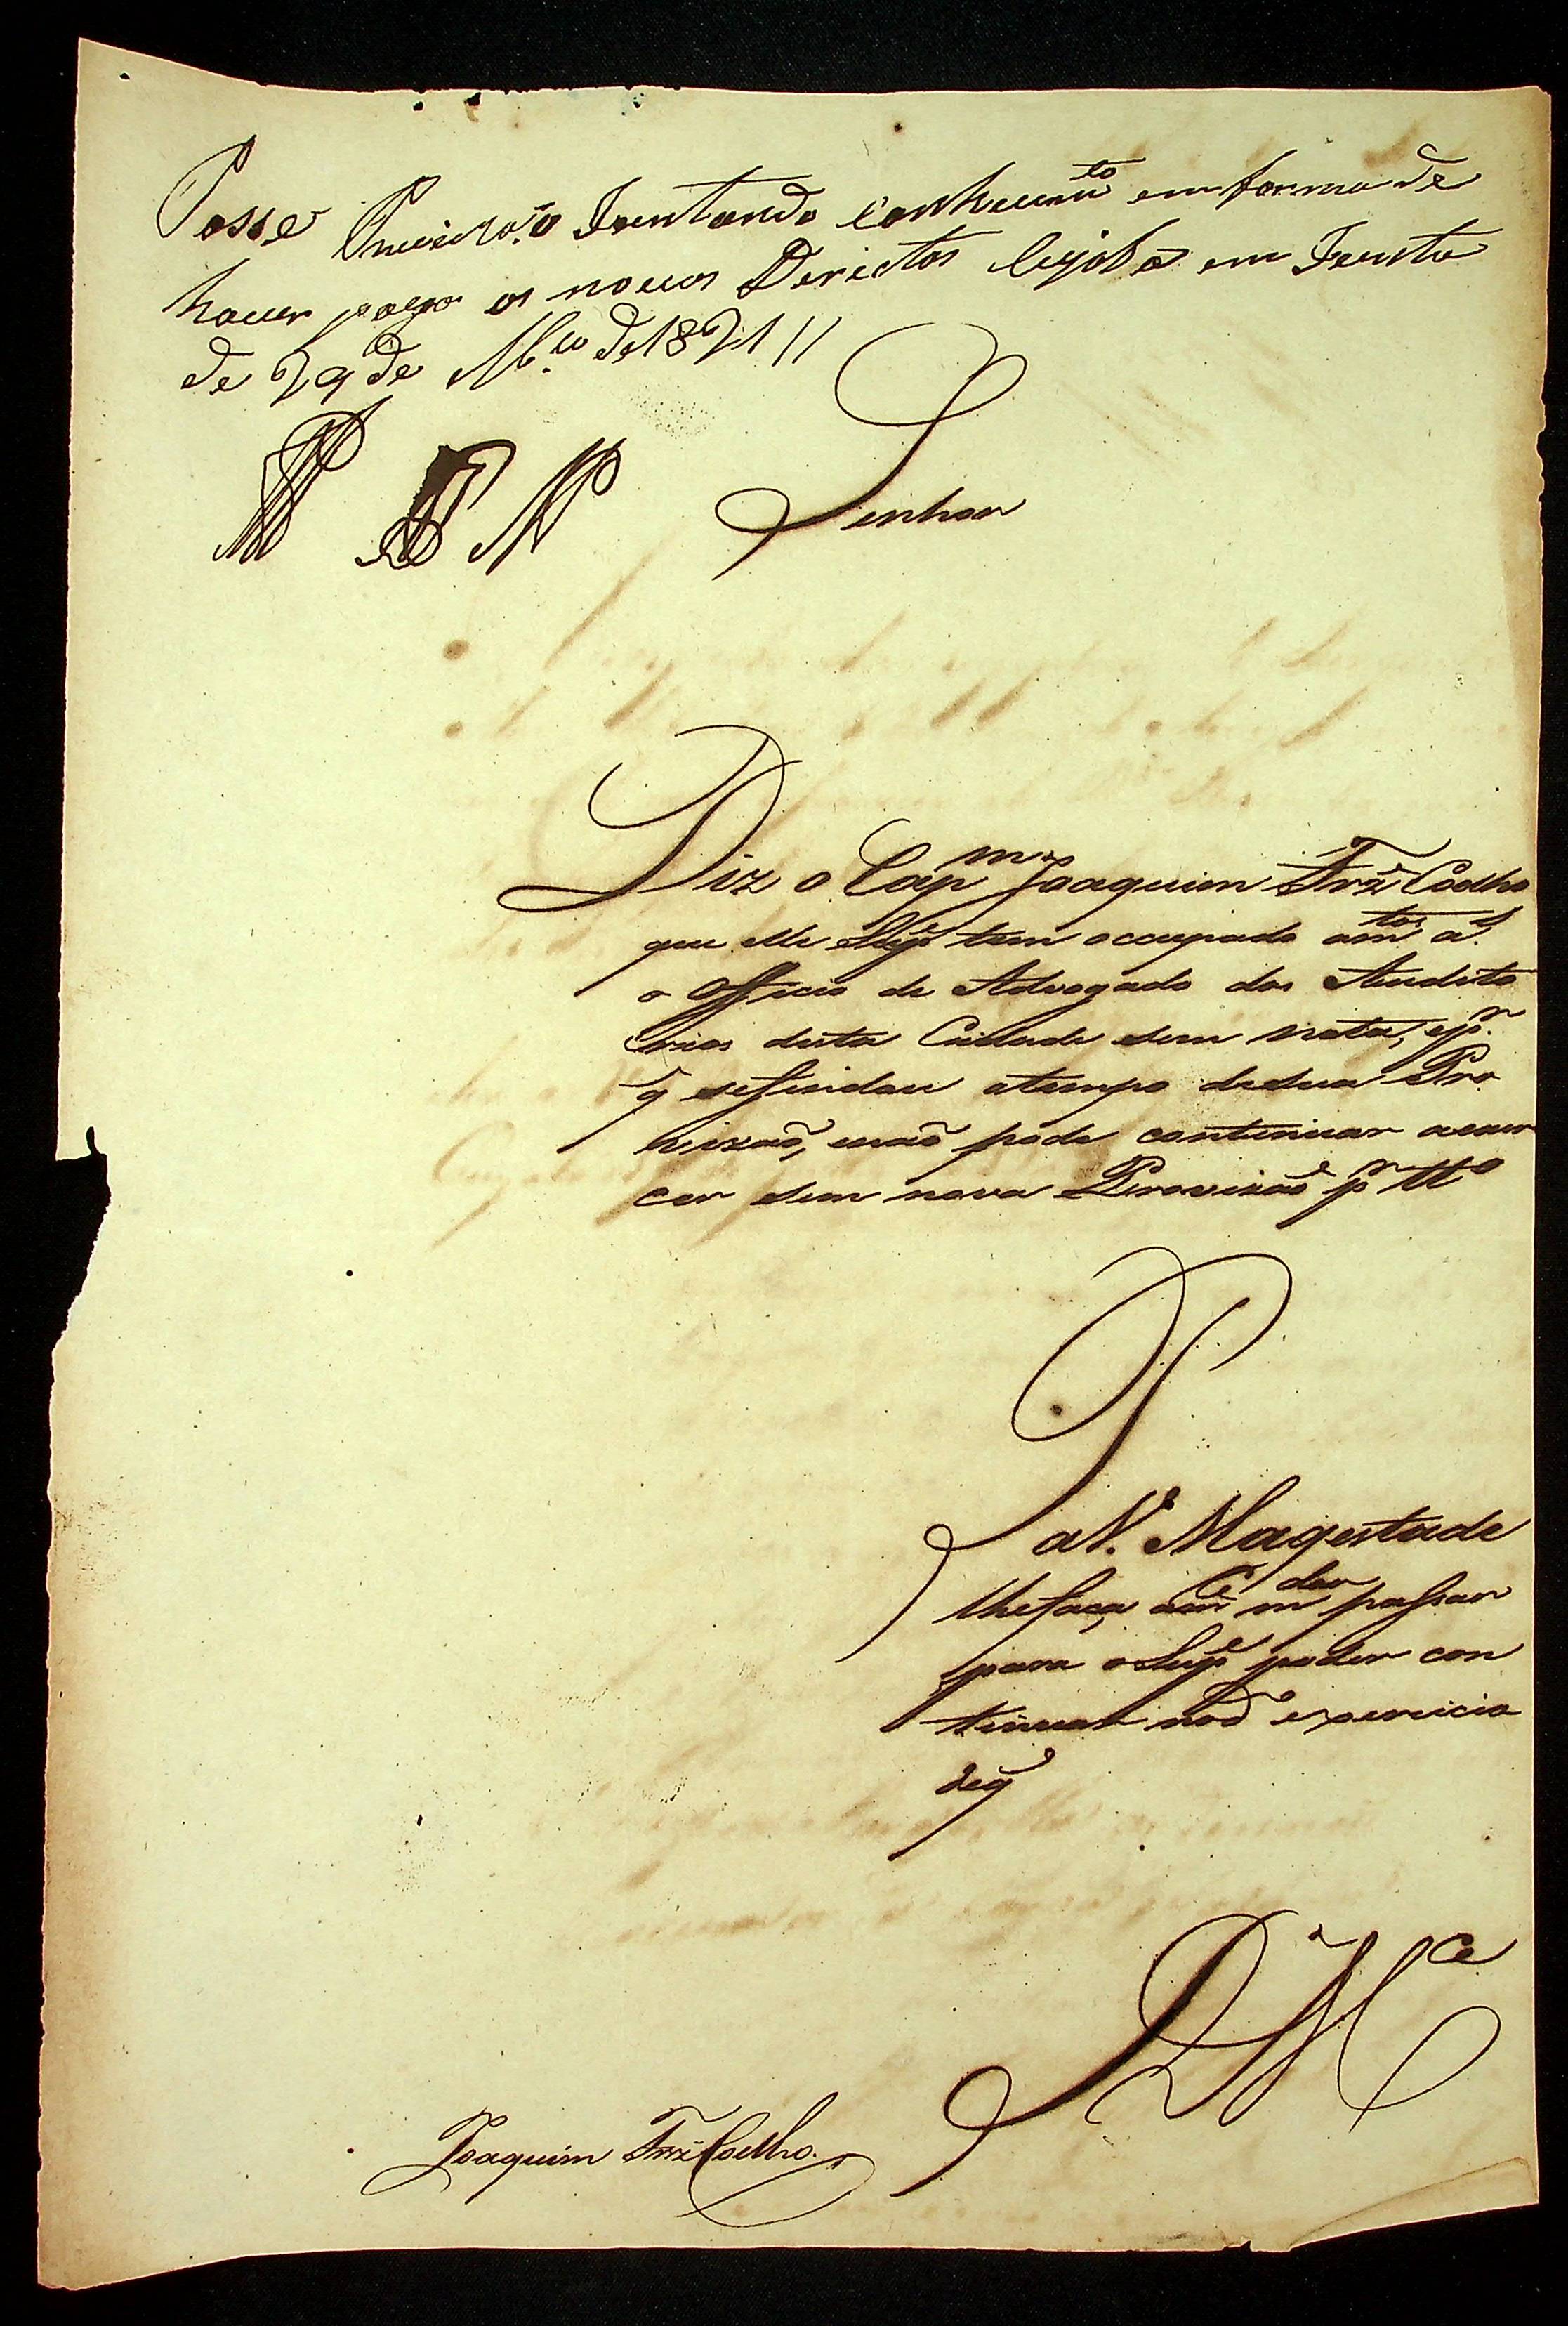 Passe Provizão Juntando conhecim.to em forma de
haver pago os novos Dereitos em Junta
de 29 de de 1821 //
Senhor
Diz o Cap.m mor Joaquim Frz̃ Coelho
que elle Sup.e tem occupado a m.tos a.s
o Officio de Advogado dos Audito
rios desta Cidade sem nota, e p.r
q̃ se findou o tempo de sua Pro
vizaõ, e naõ pode continuar a exer
cer sem nova Provizaõ p.r tt.o
P
a V. Magestade
lhe faça a m.ce m.dar passar
para o Sup.e poder con
tinuar no d.o exercicio
de q̃
E R M.ce
Joaquim Frz̃ Coelho.